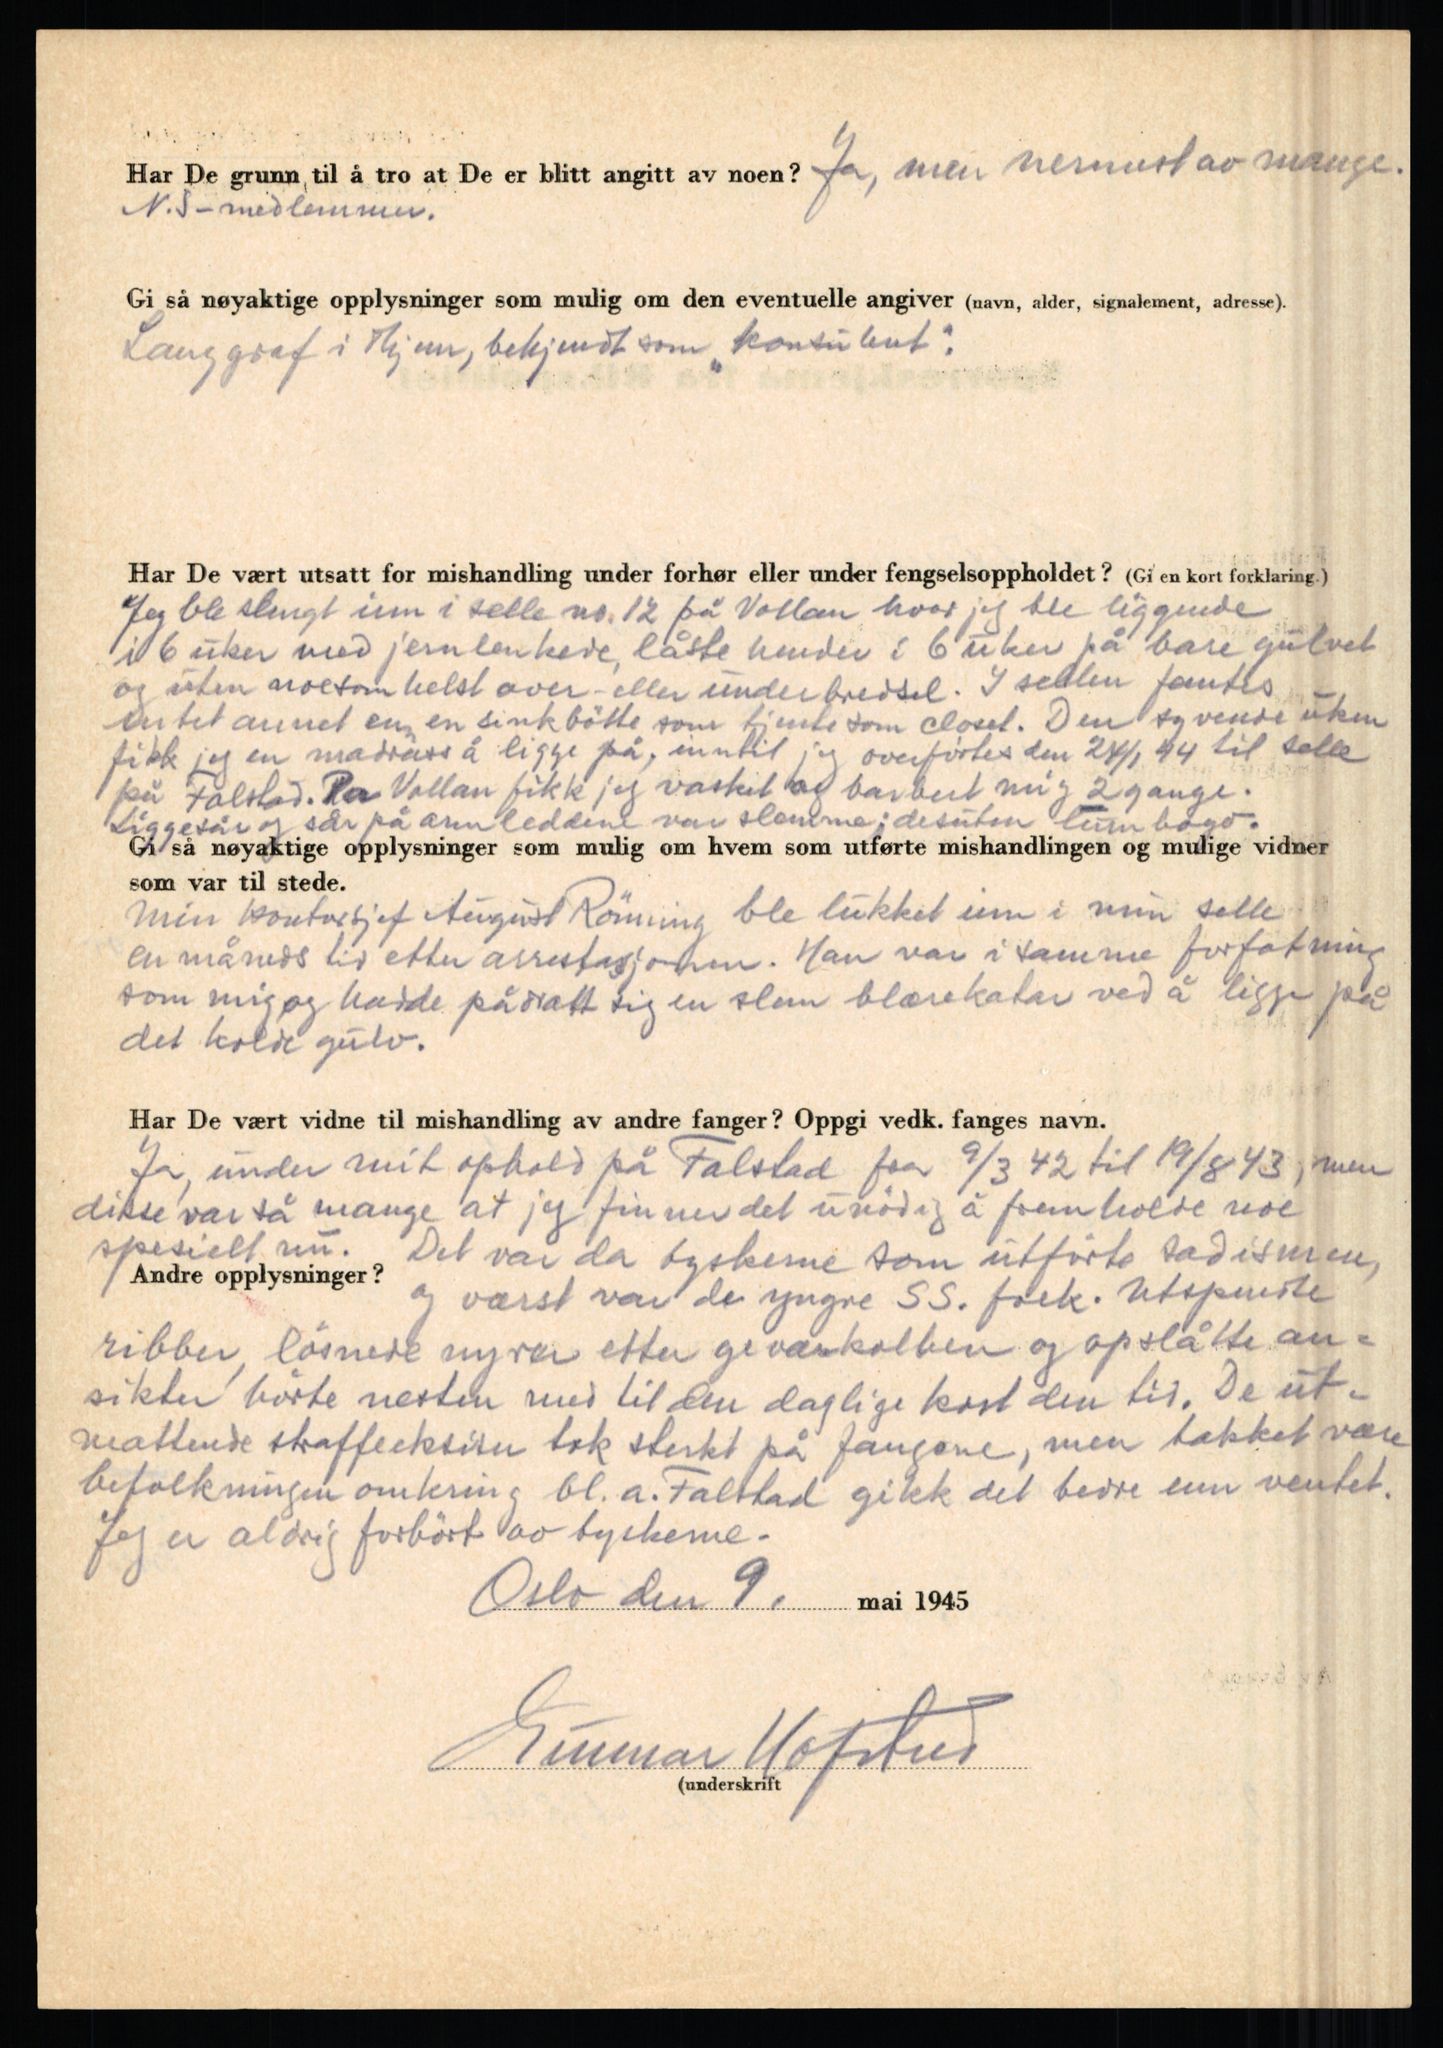 Har De grunn til å tro at De er blitt angitt av noen? Ja, men nermest av mange.
N.S-medlemmer.
Gi så nøyaktige opplysninger som mulig om den eventuelle angiver (navn, alder, signalement, adresse).
Langgraf i Hjem, bekjendt som "konsulent".
Har De vært utsatt for mishandling under forhør eller under fengselsoppholdet? (Gi en kort forklaring.)
Jeg ble slengt inn i selle no. 12 på Vollan hvor jeg ble liggende
i 6 uker med jernlenkede, låste hender i 6 uker på bare gulvet
og uten noesomhelst over- eller underbredsel. I sellen fantes
intet annet enn en sinkbötte som tjente som closet. Den syvende uken
fikk jeg en madrass å ligge på, inntil jeg overförtes den 24/1 44 til selle
på Falstad. På Vollan fikk jeg vasket og barbert mig 2 gange.
Liggesår og sår på armleddene var slemme; desuten lumbago.
Gi så nøyaktige opplysninger som mulig om hvem som utførte mishandlingen og mulige vidner
som var til stede.
Min kontorsjef August Rönning ble lukket inn i min selle
en måneds tid etter arrestasjonen. Han var i samme forfatning
som mig og hadde pådratt sig en slem blærekatar ved å ligge på
det kolde gulv.
Har De vært vidne til mishandling av andre fanger? Oppgi vedk. fanges navn.
Ja, under mit ophold på Falstad fra 9/3 42 til 19/8 43, men
disse var så mange at jeg finner det unödig å fremholde noe
spesielt nu. Det var da tyskerne som utförte sadismen,
Andre opplysninger?
og værst var de yngre SS. folk. Utspendte
ribber, lösnede nyrer etter geværkolben og opslåtte an-
sikter hörte nesten med til den daglige kost den tid. De ut-
mattende straffeeksiser tok sterkt på fangene, men takket være
befolkningen omkring bl. a. Falstad gikk det bedre enn ventet.
Jeg er aldrig forhört av tyskerne.
Oslo den 9. mai 1945
Gunnar Hofstad
(underskrift